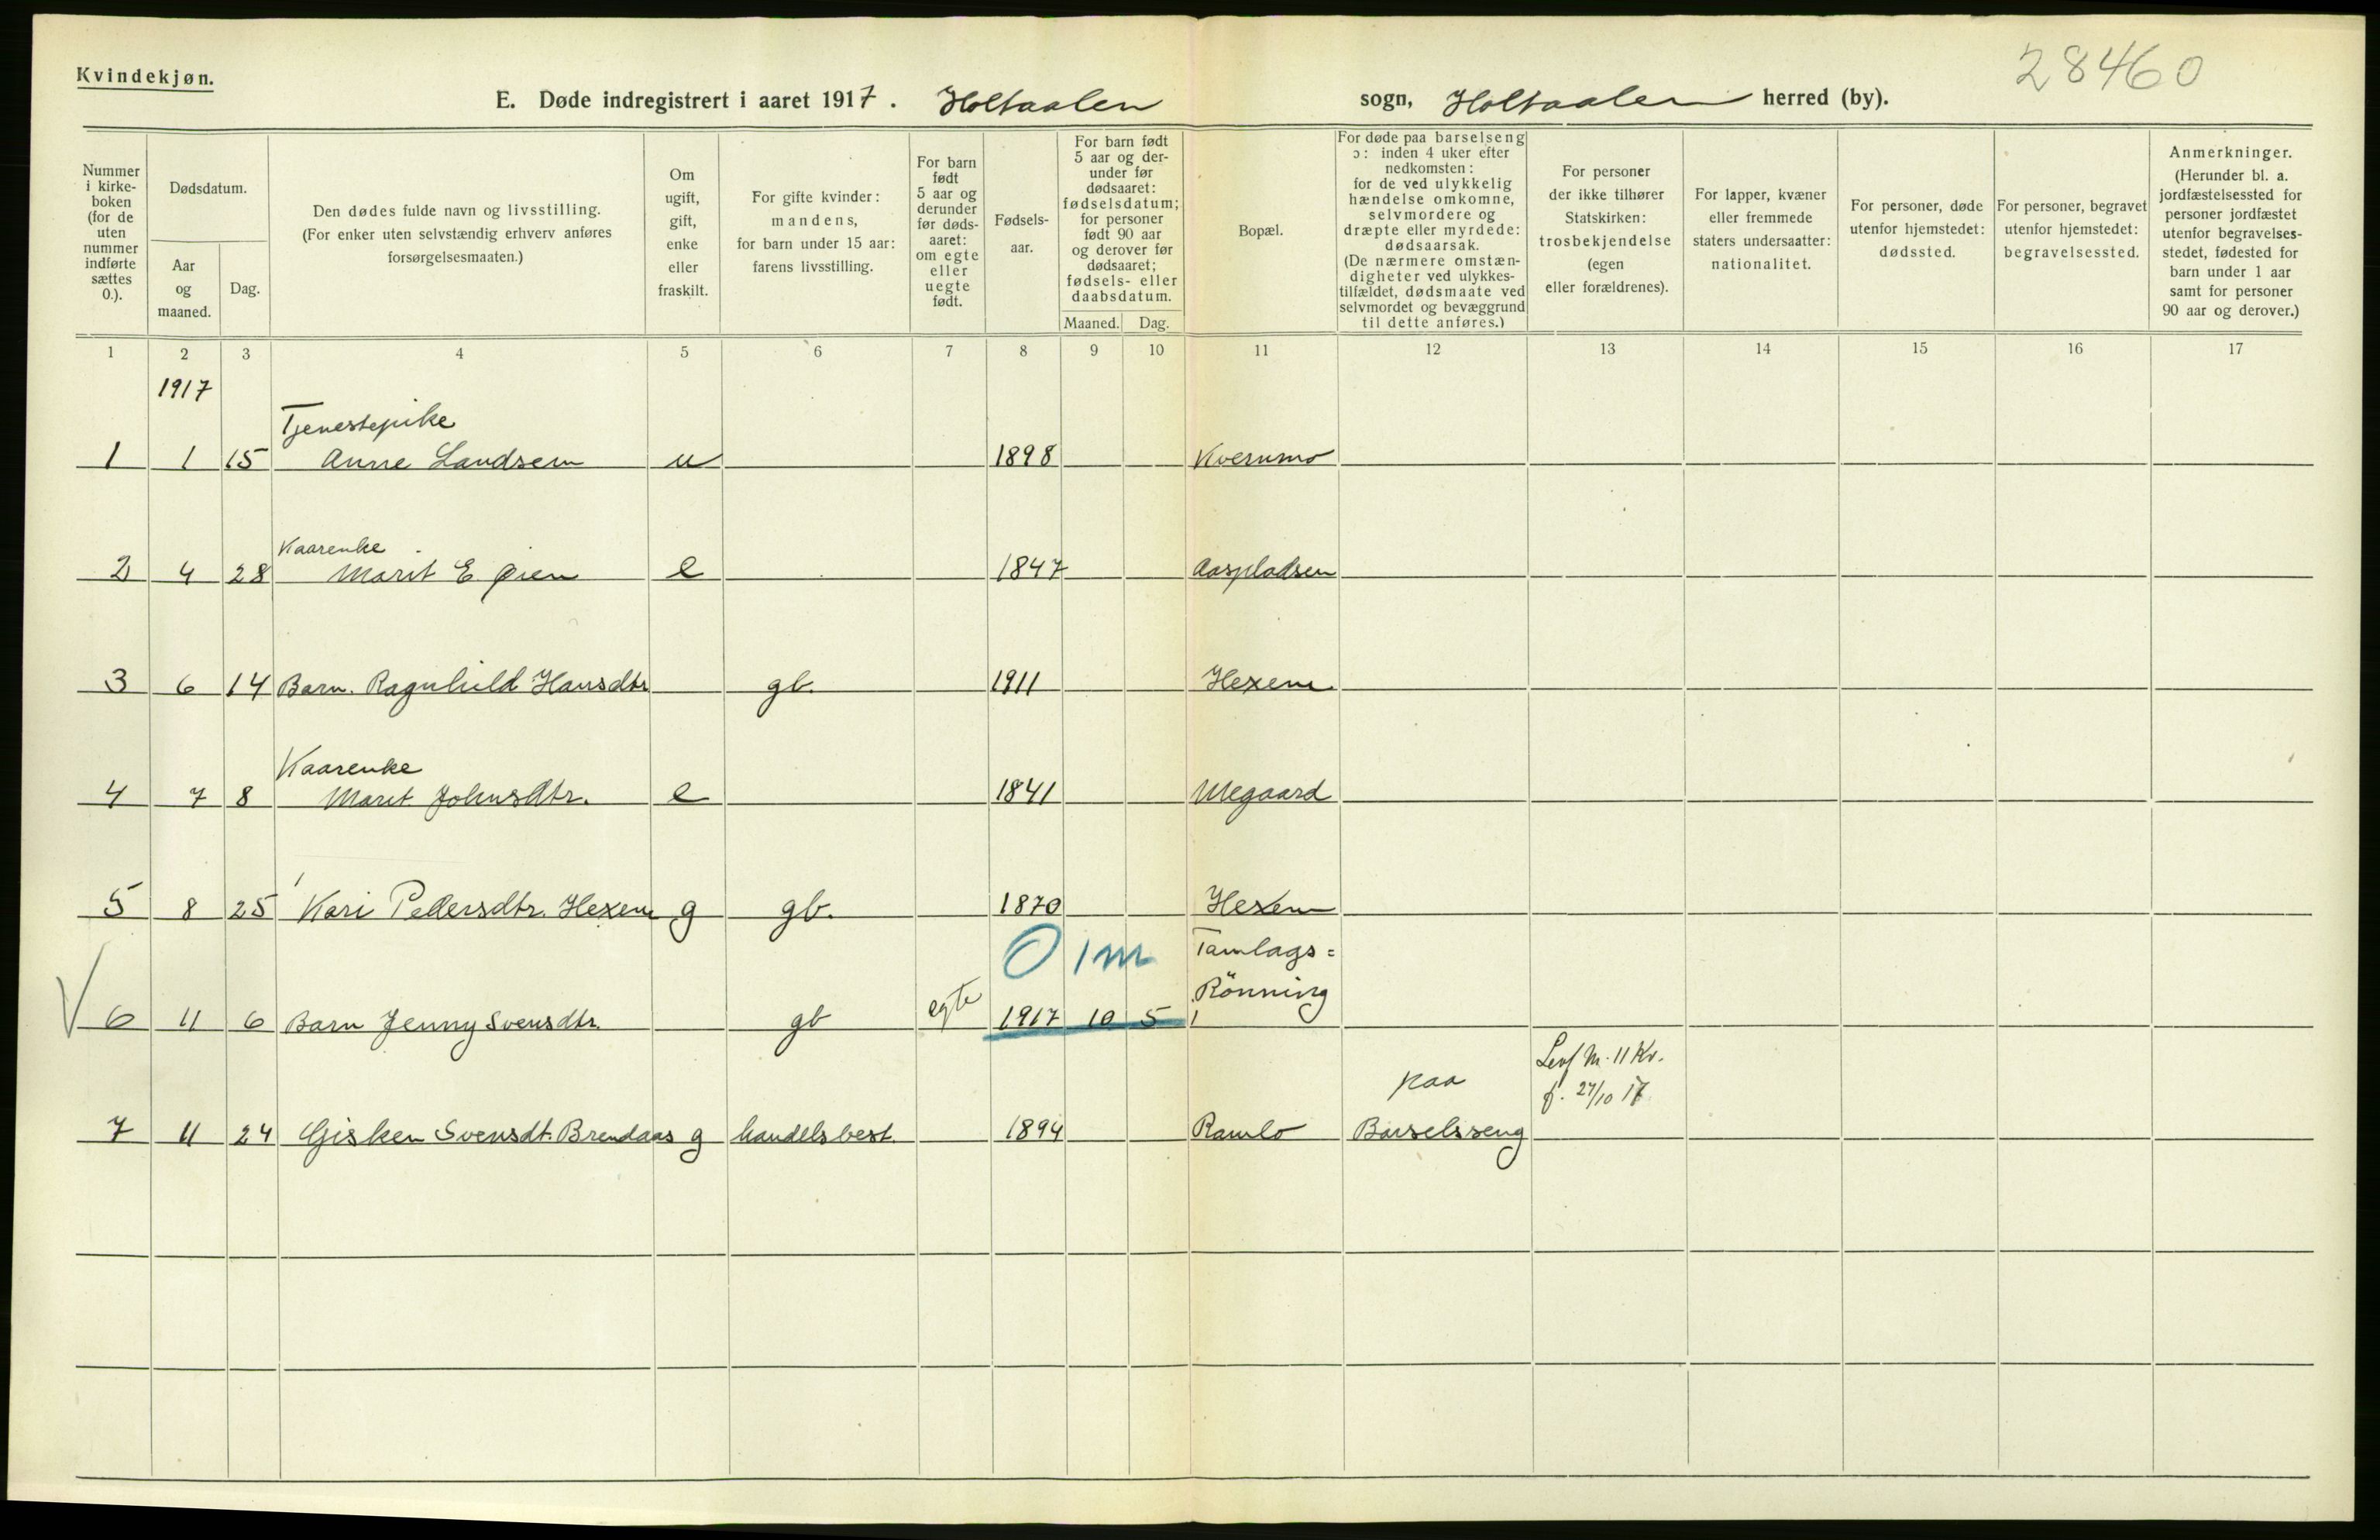 Kvindekjøn.
28460
E. Døde indregistrert i aaret 1917. Holtaalen sogn, Holtaalen herred (by).
Nummer i kirke- boken (for de uten nummer indførte sættes 0.).
Dødsdatum.
Aar og maaned.
Dag.
Den dødes fulde navn og livsstilling.
(For enker uten selvstændig erhverv anføres
forsørgelsesmaaten.)
Om ugift, gift, enke eller fraskilt.
For gifte kvinder:
mandens,
for barn under 15 aar:
farens livsstilling.
For barn født 5 aar og derunder før døds- aaret: om egte eller uegte født.
Fødsels- aar.
For barn født 5 aar og der- under før dødsaaret: fødselsdatum; for personer født 90 aar og derover før dødsaaret; fødsels- eller daabsdatum.
Maaned.
Dag.
Bopæl.
For døde paa barselseng
ɔ: inden 4 uker efter
nedkomsten:
for de ved ulykkelig
hændelse omkomne,
selvmordere og
dræpte eller myrdede:
dødsaarsak.
(De nærmere omstæn-
digheter ved ulykkes-
tilfældet, dødsmaate ved
selvmordet og bevæggrund
til dette anføres.)
For personer
der ikke tilhører
Statskirken:
trosbekjendelse
(egen
eller forældrenes).
For lapper, kvæner
eller fremmede
staters undersaatter:
nationalitet.
For personer, døde
utenfor hjemstedet:
dødssted.
For personer, begravet
utenfor hjemstedet:
begravelsessted.
Anmerkninger.
(Herunder bl. a.
jordfæstelsessted for
personer jordfæstet
utenfor begravelses-
stedet, fødested for
barn under 1 aar
samt for personer
90 aar og derover.)
1 2 3 4 5 6 7 8 9 10 11 12 13 14 15 16 17
1917
Tjenestepike
1 1 15 Anne Landsem u 1898 Kvernmo
Kaarenke
2 4 28 Marit E. Øien e 1847 Aaspladsen
3 6 14 Barn. Ragnhild Hansdtr gb. 1911 Hexem
Kaarenke
4 7 8 Maret Johnsdtr. e 1841 Megaard
5 8 25 Kari Pedersdtr. Hexem g gb. 1870 Hexem
0 1m Tamlags=
Rönning
6 11 6 Barn Jenny Svensdtr. gb egte 1917 10 5
paa Lev f M. 11 Kv.
f. 27/10 17
7 11 24 Gisken Svensdt. Brendaas g handelsbest. 1894 Ramlo Barselsseng